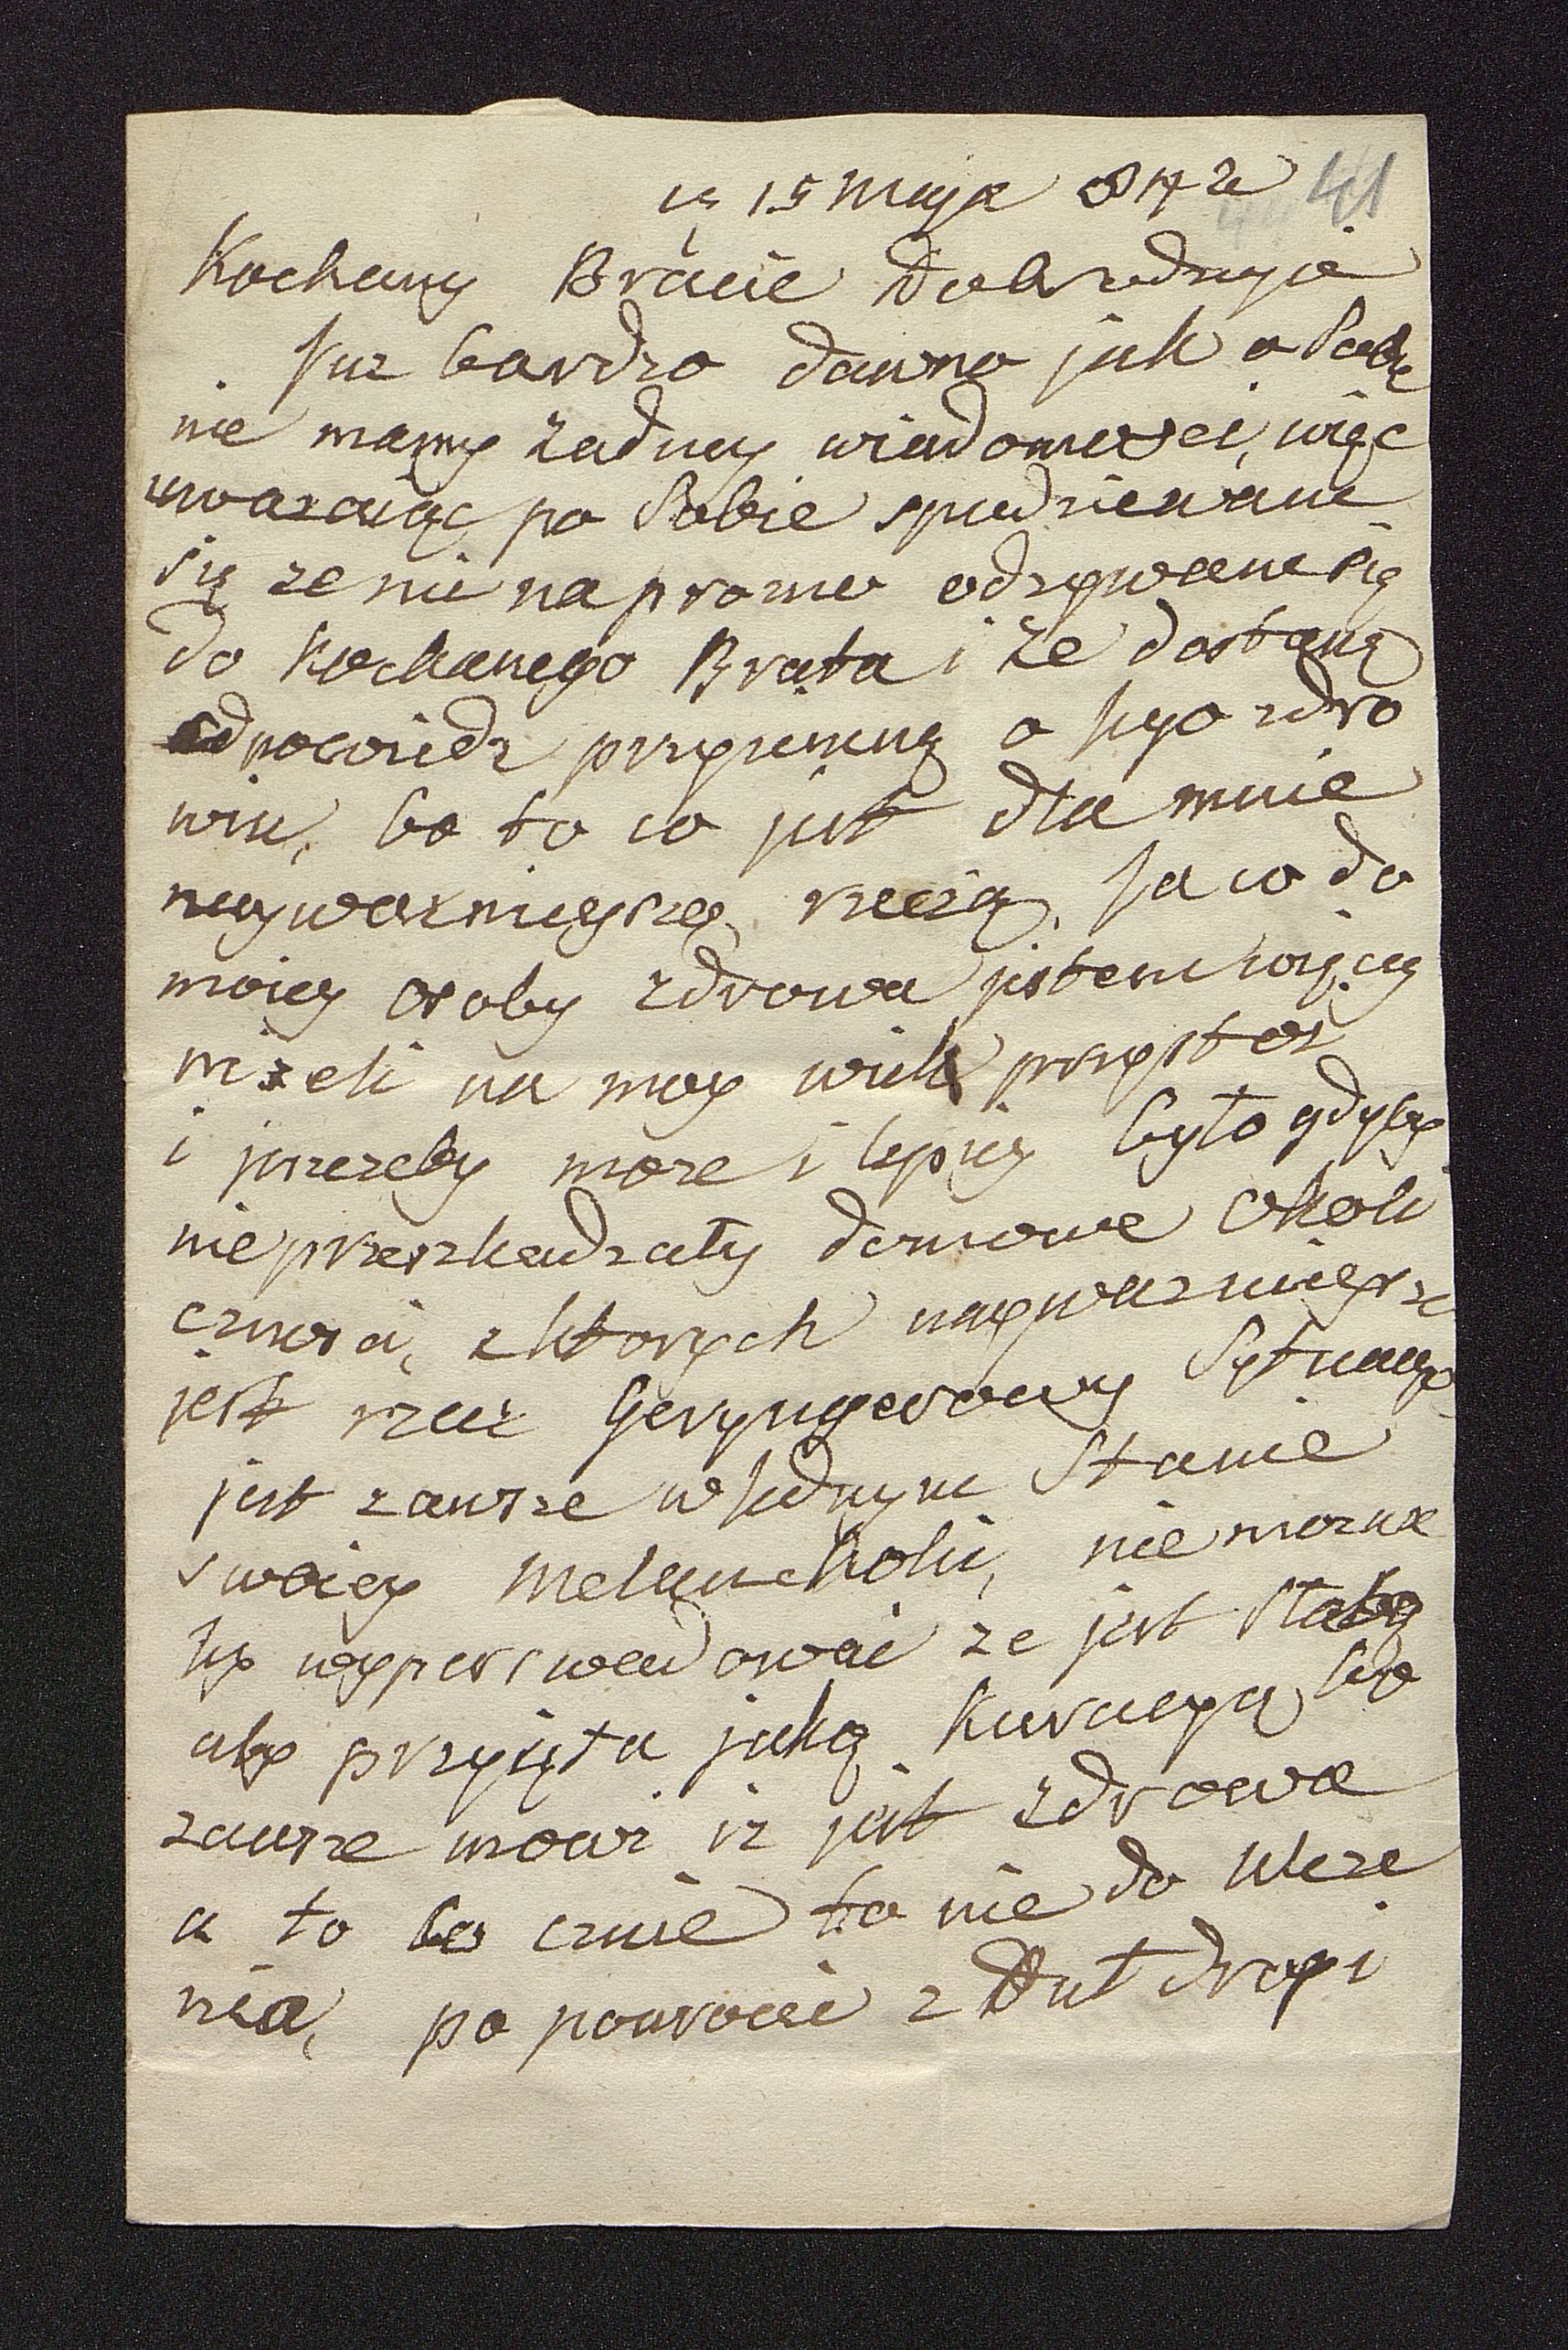 15 Maja 872 41
Kochany Bracie Dobrodzyie
Juz bardzo dawno jak o Sobie
nie mamy zadney wiadomosci, więc
uwazaiąc po Sobie spodziewame
się ze nie na prozno odzywam się
do Kochanego Brata i że dostanę
odpowiedz przyiemną o jego zdro
wiu, bo to co jest dla mnie
nayważnieyszą rzeczą. Ja co do
moiey osoby zdrowa jestem więcey
nizeli na moy wiek przystoi
i jeszczeby moze i lepiey było gdyby
nieprzeszkadzały domowe okoli
cznosci, z ktorych nayważnieysze
jest rzecz Geryngerowy Sytuacyi
jest zawsze w jednym Stanie
swoiey Melancholii, nie mozna
Jey wyperswadować ze jest słabą
aby przyięła jaką Kuracyą bo
zawsze mowi iz jest zdrowa
a to bo czuie to nie do ulecze
nia, po powrocie z Dut drogi